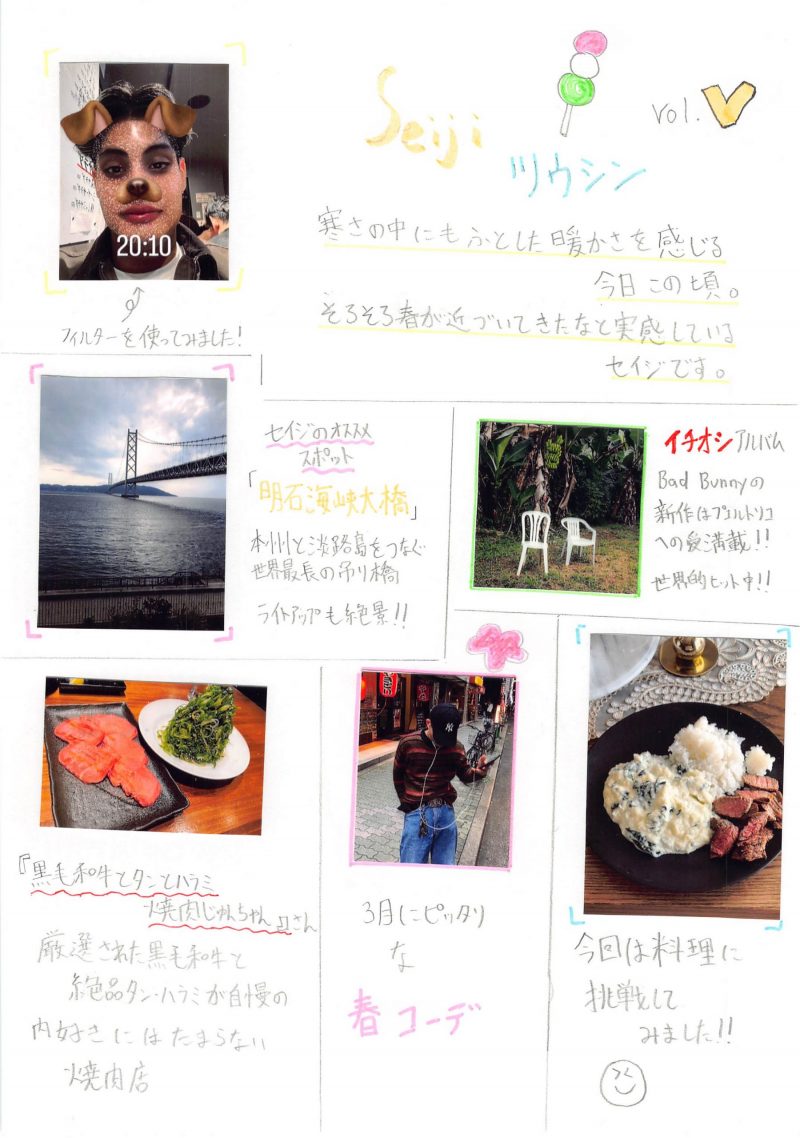 Seiji
vol. V
ツウシン
20:10
フィルターを使ってみました!
寒さの中にもふとした暖かさを感じる
今日この頃。
そろそろ春が近づいてきたなと実感している
セイジです。
セイジのオススメ
スポット
「明石海峡大橋」
本州と淡路島をつなぐ
世界最長の吊り橋
ライトアップも絶景!!
イチオシアルバム
Bad Bunnyの
新作はプエルトリコ
への愛満載!!
世界的ヒット中!!
『黒毛和牛とタンとハラミ
焼肉じゅんちゃん』さん
厳選された黒毛和牛と
絶品タン・ハラミが自慢の
肉好きにはたまらない
焼肉店
3月にピッタリ
な
春コーデ
今回は料理に
挑戦して
みました!!